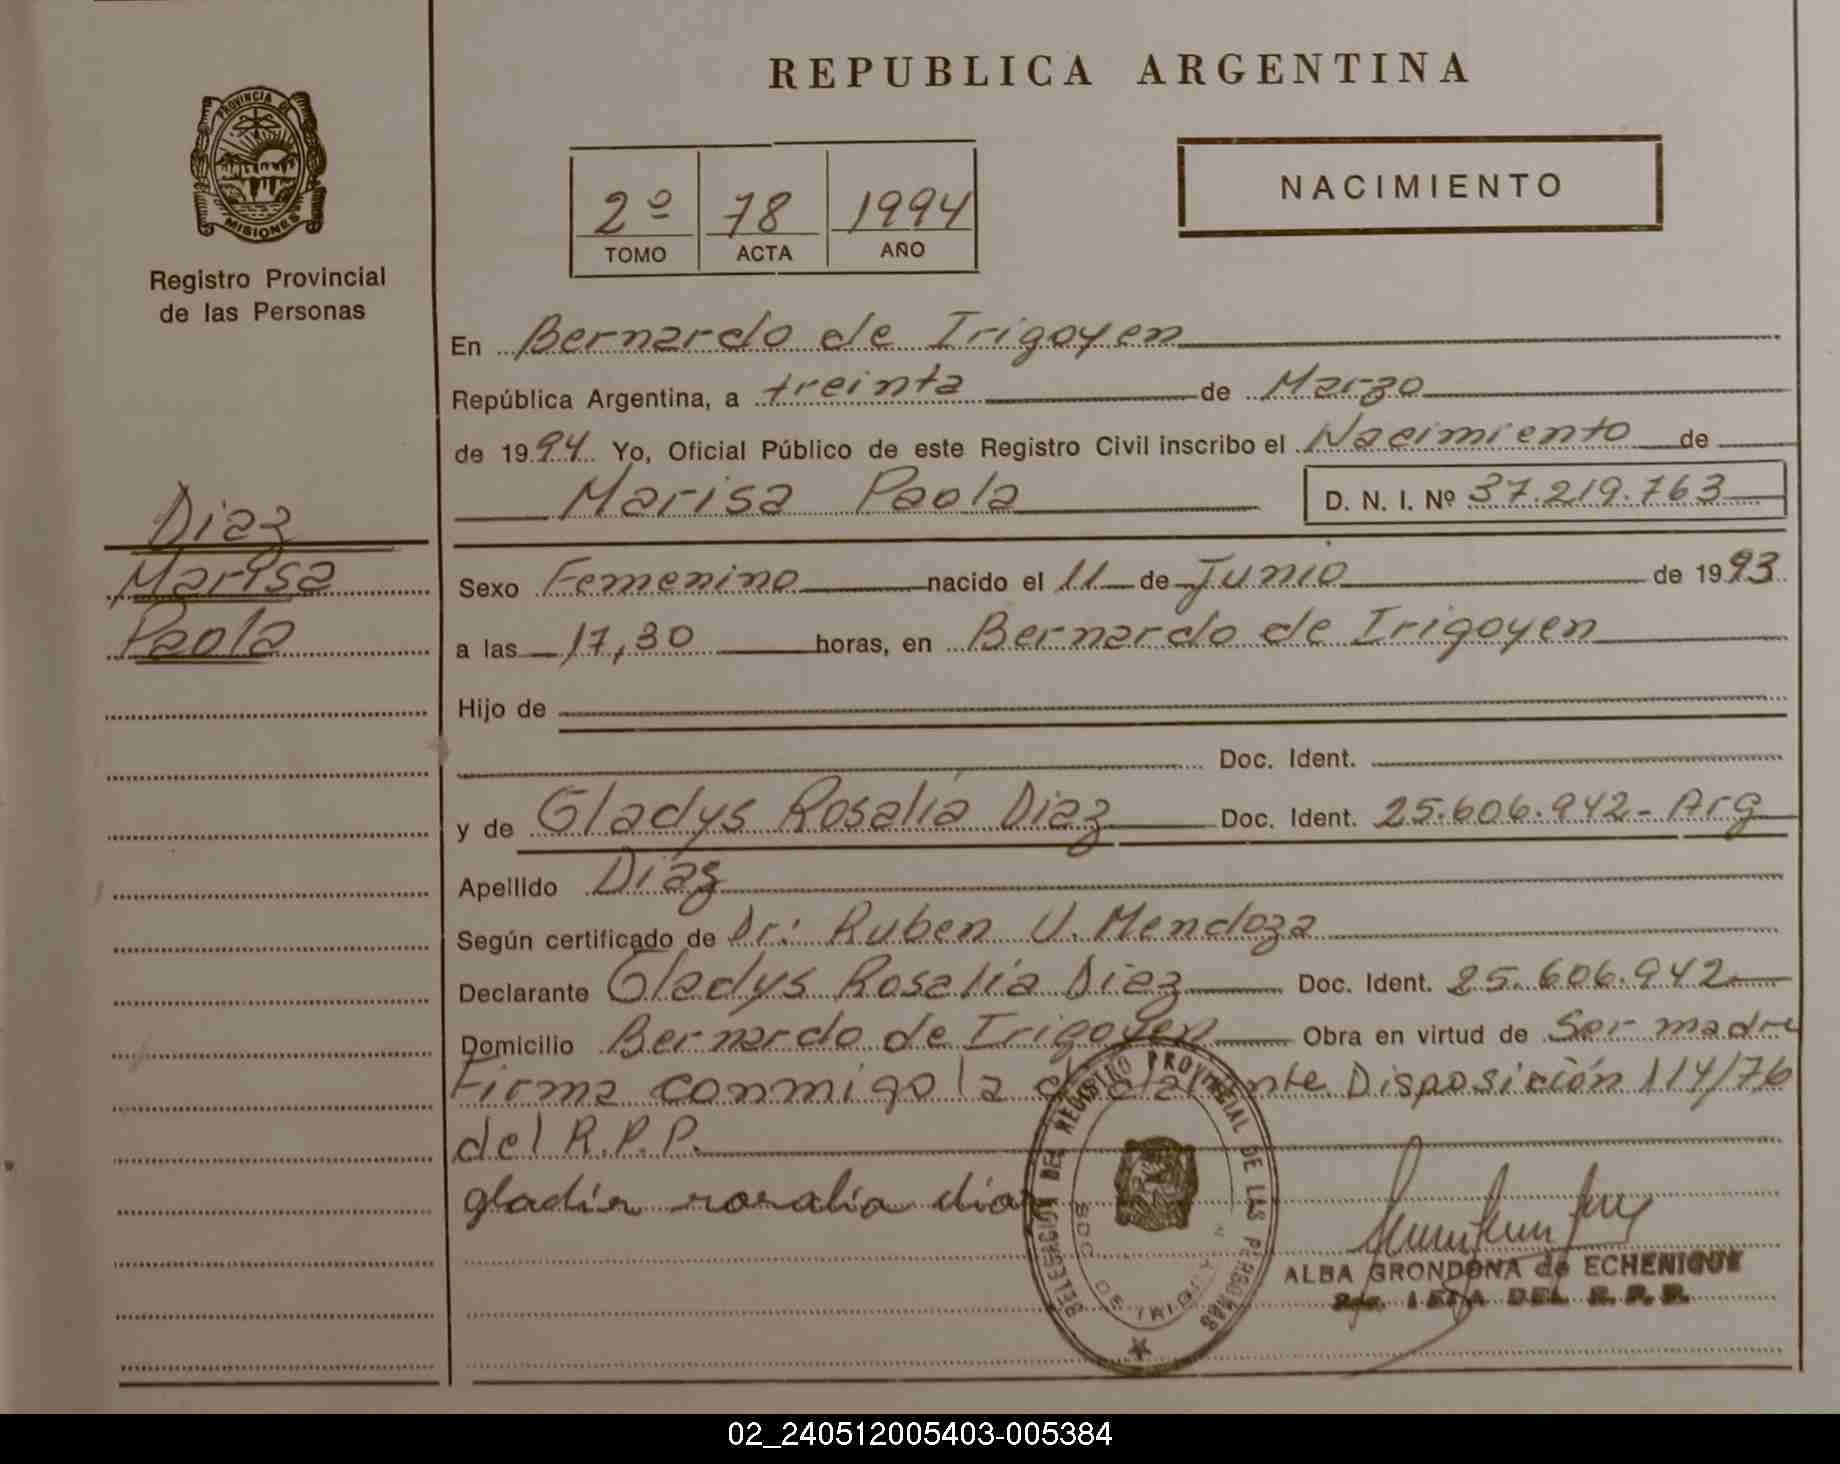 REPUBLICA ARGENTINA
PROVINCIA DE
MISIONES
Registro Provincial
de las Personas
2º 78 1994
TOMO ACTA AÑO
NACIMIENTO
Diaz
Marisa
Paola
En Bernardo de Irigoyen
República Argentina, a treinta de Marzo
de 1994 Yo, Oficial Público de este Registro Civil inscribo el Nacimiento de
Marisa Paola D. N. I. Nº 37.219.763
Sexo Femenino nacido el 11 de Junio de 1993
a las 17,30 horas, en Bernardo de Irigoyen
Hijo de
Doc. Ident.
y de Gladys Rosalía Diaz Doc. Ident. 25.606.942- Arg
Apellido Díaz
Según certificado de Dr: Ruben U. Mendoza
Declarante Gladys Rosalía Diaz Doc. Ident. 25.606.942
Domicilio Bernardo de Irigoyen Obra en virtud de Ser madre
Firma conmigo la declarante Disposición 114/76
del R.P.P.
gladir rosalia diaz
DELEGACION DEL REGISTRO PROVINCIAL DE LAS PERSONAS
BDO DE IRIGOYEN
ALBA GRONDONA de ECHENIQUE
DEL R. P. P.
02_240512005403-005384